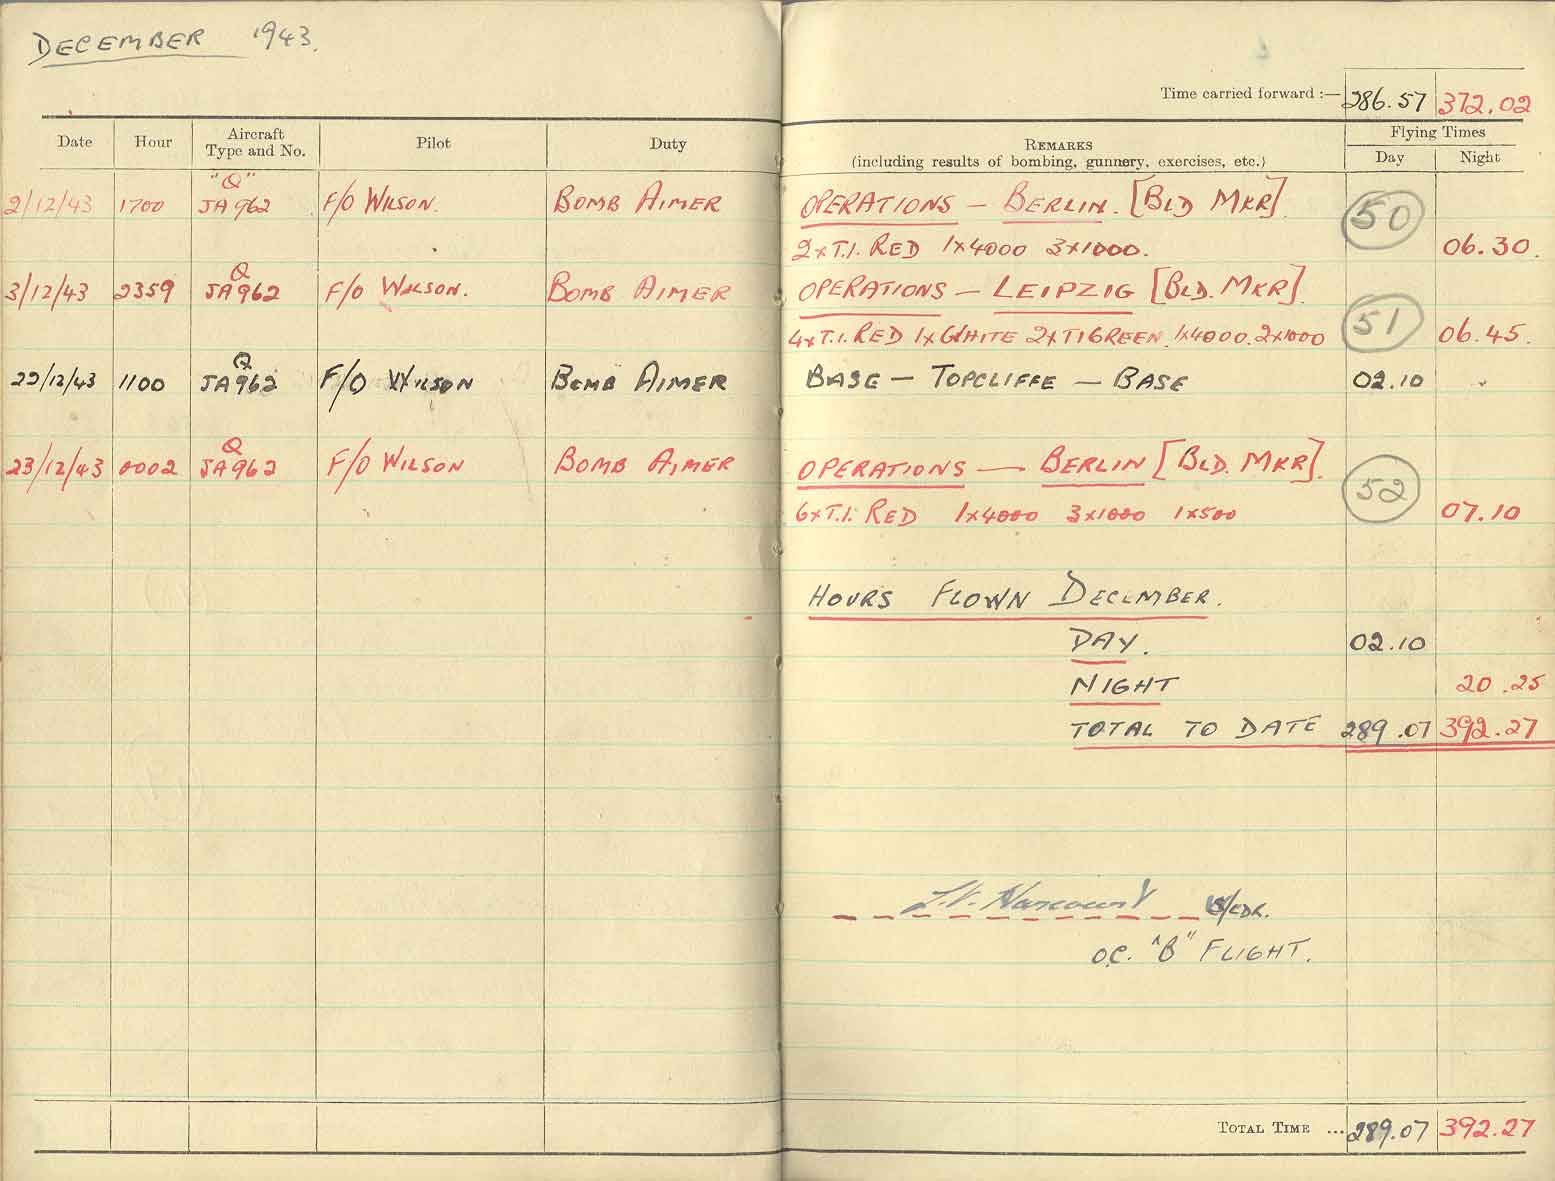 DECEMBER 1943.
Time carried forward :— 286.57 372.02
Date Hour Aircraft Type and No. Pilot Duty REMARKS (including results of bombing, gunnery, exercises, etc.) Flying Times Day Night
"Q"
2/12/43 1700 JA962 F/O WILSON. BOMB AIMER OPERATIONS — BERLIN. [BLD MKR] 50
2xT.I. RED 1x4000 3x1000. 06.30.
Q
3/12/43 2359 JA962 F/O WILSON. BOMB AIMER OPERATIONS — LEIPZIG [BLD. MKR] 51
4xT.I. RED 1xWHITE 2xTIGREEN. 1x4000. 2x1000 06.45.
Q
22/12/43 1100 JA962 F/O WILSON BOMB AIMER BASE — TOPCLIFFE — BASE 02.10
Q
23/12/43 0002 JA962 F/O WILSON BOMB AIMER OPERATIONS — BERLIN [BLD. MKR]. 52
6xT.I. RED 1x4000 3x1000 1x500 07.10
HOURS FLOWN DECEMBER.
DAY. 02.10
NIGHT 20.25
TOTAL TO DATE 289.07 392.27
L.V. Harcourt S/LDR.
O.C. "B" FLIGHT.
TOTAL TIME ... 289.07 392.27